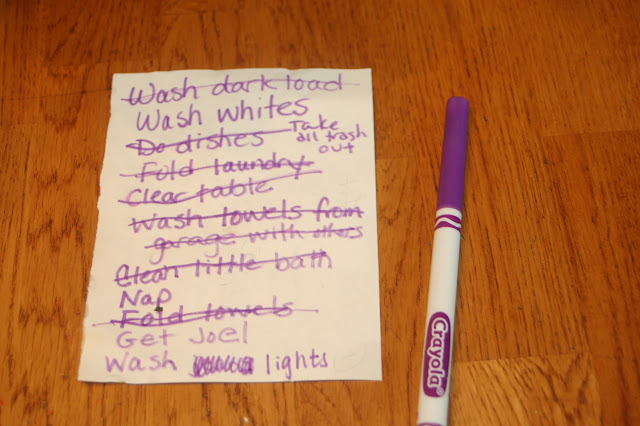 Wash dark load
Wash whites
Do dishes
Take
all trash
out
Fold laundry
Clear table
Wash towels from
garage with others
Clean little bath
Nap
Fold towels
Get Joel
Wash lights
Crayola